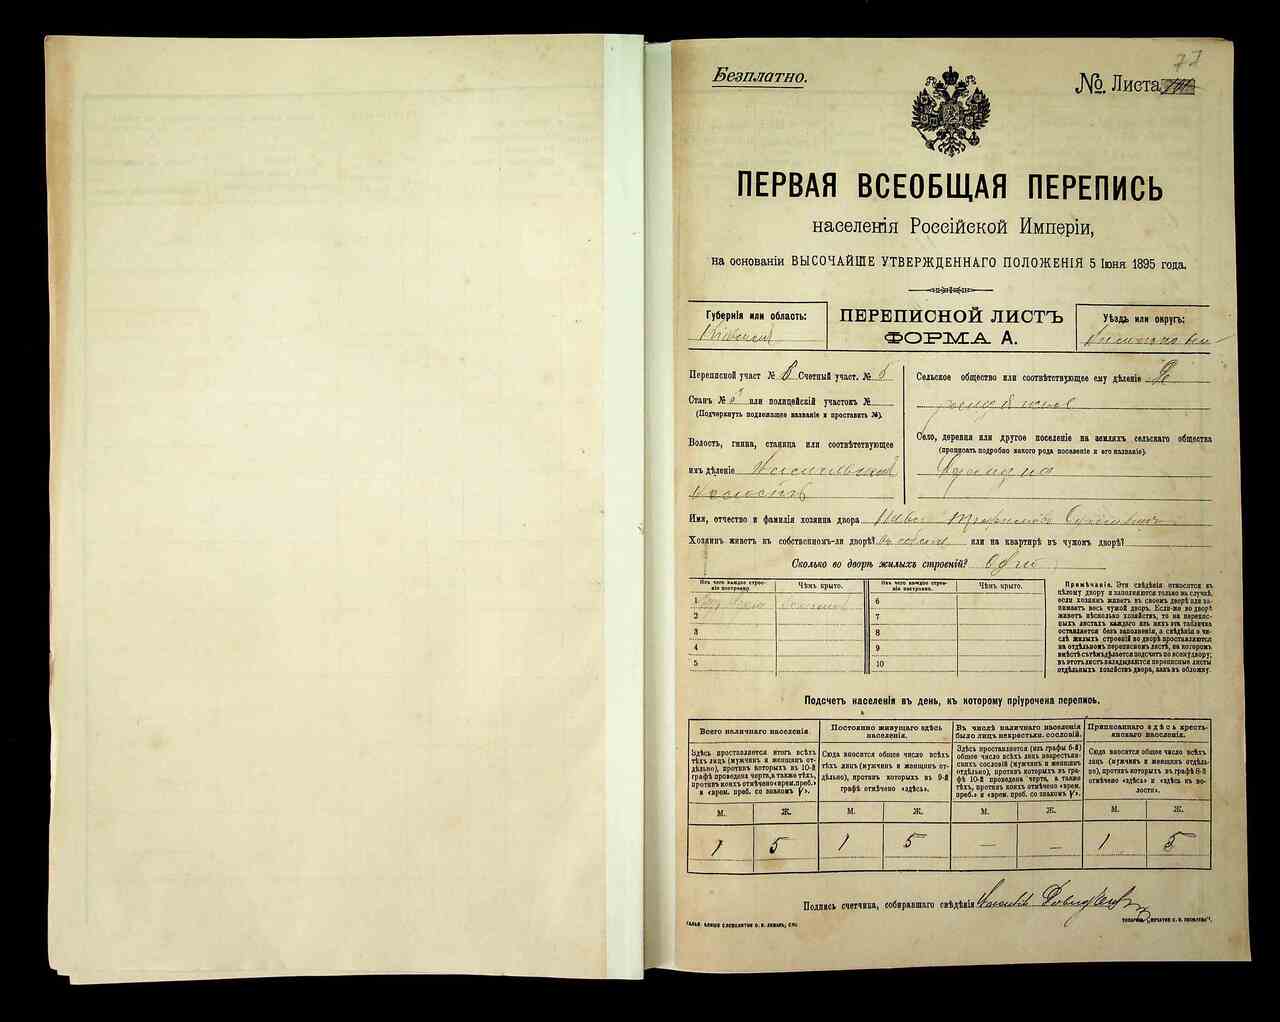 77
Безплатно.
№ Листа
ПЕРВАЯ ВСЕОБЩАЯ ПЕРЕПИСЬ
населенія Россійской Имперіи,
на основаніи ВЫСОЧАЙШЕ УТВЕРЖДЕННАГО ПОЛОЖЕНІЯ 5 Іюня 1895 года.
Губернія или область:
Кіевская
ПЕРЕПИСНОЙ ЛИСТЪ
ФОРМА А.
Уѣздъ или округъ:
Переписной участ № 6 Счетный участ. № 6
Станъ № 3 или полицейскій участокъ №
(Подчеркнуть подлежащее названіе и проставить №).
Волость, гмина, станица или соотвѣтствующее
имъ дѣленіе
Волость
Сельское общество или соотвѣтствующее ему дѣленіе
Село, деревня или другое поселеніе на земляхъ сельскаго общества
(прописать подробно какого рода поселеніе и его названіе).
Имя, отчество и фамилія хозяина двора
Хозяинъ живетъ въ собственномъ-ли дворѣ? или на квартирѣ въ чужомъ дворѣ?
Сколько во дворѣ жилыхъ строеній?
Изъ чего каждое строеніе построено. Чѣмъ крыто. Изъ чего каждое строеніе построено. Чѣмъ крыто.
1 6
2 7
3 8
4 9
5 10
Примѣчаніе. Эти свѣдѣнія относятся къ
цѣлому двору и заполняются только на случай,
если хозяинъ живетъ въ своемъ дворѣ или за-
нимаетъ весь чужой дворъ. Если-же во дворѣ
живетъ нѣсколько хозяйствъ, то на перепис-
ныхъ листахъ каждаго изъ нихъ эта табличка
оставляется безъ заполненія, а свѣдѣнія о чи-
слѣ жилыхъ строеній во дворѣ проставляются
на отдѣльномъ переписномъ листѣ, на которомъ
вмѣстѣ съ тѣмъ дѣлается подсчетъ по всему двору;
въ этотъ листъ вкладываются переписные листы
отдѣльныхъ хозяйствъ двора, какъ въ обложку.
Подсчетъ населенія въ день, къ которому пріурочена перепись.
Всего наличнаго населенія.
Здѣсь проставляется итогъ всѣхъ
тѣхъ лицъ (мужчинъ и женщинъ от-
дѣльно), противъ которыхъ въ 10-й
графѣ проведена черта, а также тѣхъ,
противъ коихъ отмѣчено «врем. преб.»
и «врем. преб. со знакомъ V».
Постоянно живущаго здѣсь
населенія.
Сюда вносится общее число всѣхъ
тѣхъ лицъ (мужчинъ и женщинъ от-
дѣльно), противъ которыхъ въ 9-й
графѣ отмѣчено «здѣсь».
Въ числѣ наличнаго населенія
было лицъ некрестьян. сословій.
Здѣсь проставляется (изъ графы 5-й)
общее число всѣхъ лицъ некрестьян-
скихъ сословій (мужчинъ и женщинъ
отдѣльно), противъ которыхъ въ гра-
фѣ 10-й проведена черта, а также
тѣхъ, противъ коихъ отмѣчено «врем.
преб.» и «врем. преб. со знакомъ V».
Приписаннаго здѣсь кресть-
янскаго населенія.
Сюда вносится общее число всѣхъ
лицъ (мужчинъ и женщинъ отдѣль-
но), противъ которыхъ въ графѣ 8-й
отмѣчено «здѣсь» и «здѣсь въ во-
лости».
М. Ж. М. Ж. М. Ж. М. Ж.
1 5 1 5 — — 1 5
Подпись счетчика, собиравшаго свѣдѣнія